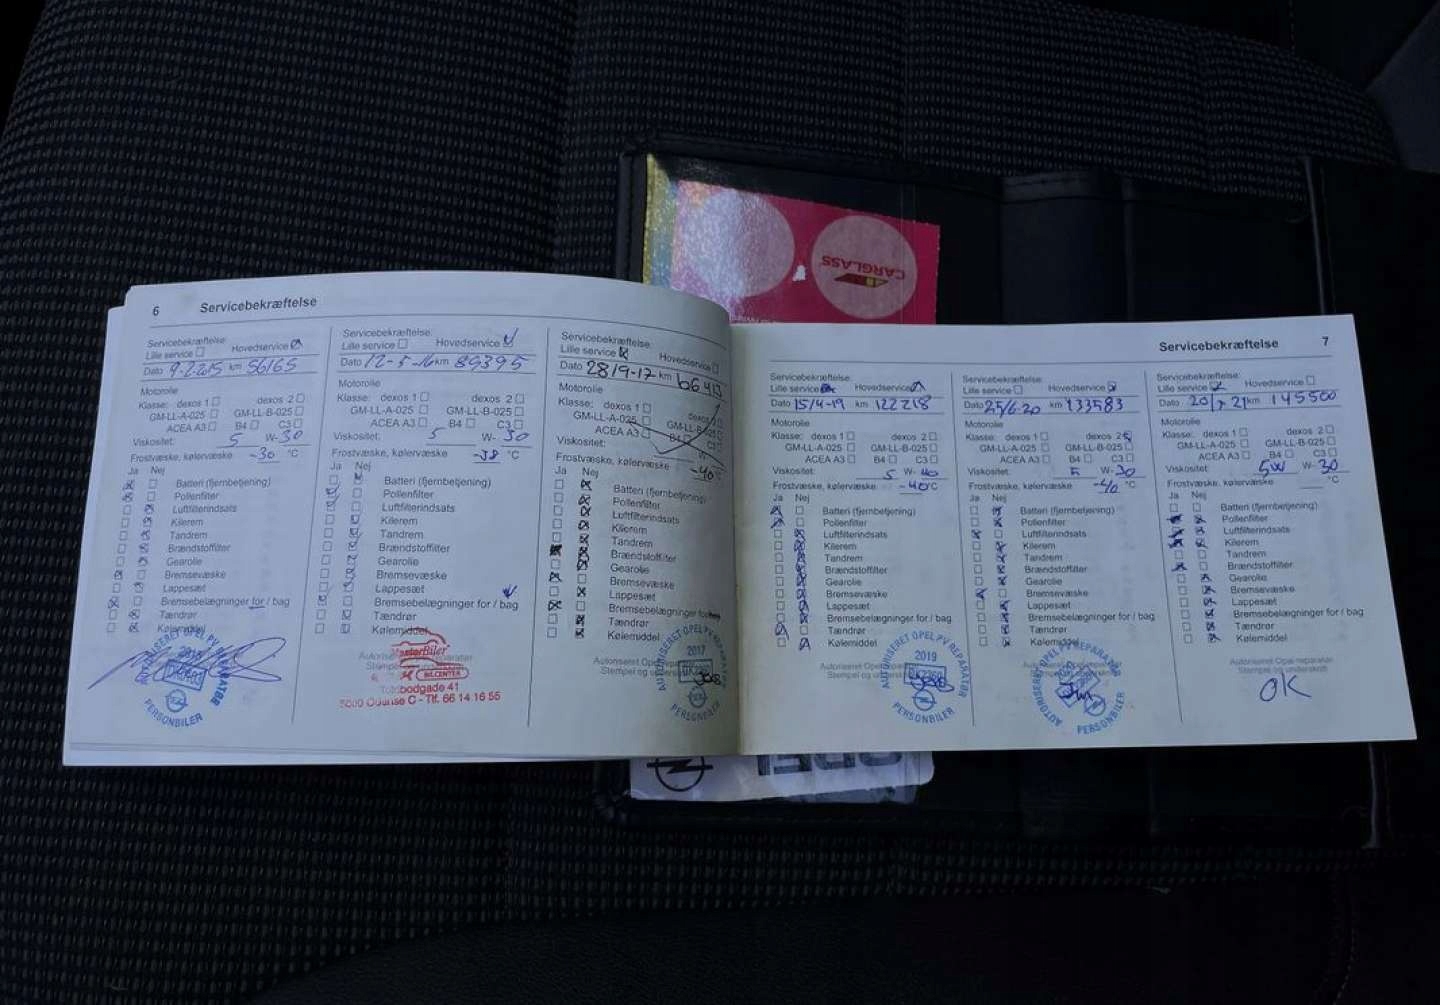 6 Servicebekræftelse
Servicebekræftelse:
Lille service Hovedservice
Dato 9-2-2015 km 56165
Motorolie
Klasse: dexos 1 dexos 2
GM-LL-A-025 GM-LL-B-025
ACEA A3 B4 C3
Viskositet: 5 W- 30
Frostvæske, kølervæske -30 °C
Ja Nej
Batteri (fjernbetjening)
Pollenfilter
Luftfilterindsats
Kilerem
Tandrem
Brændstoffilter
Gearolie
Bremsevæske
Lappesæt
Bremsebelægninger for / bag
Tændrør
Kølemiddel
AUTORISERET OPEL PV REPARATØR
PERSONBILER
Servicebekræftelse:
Lille service Hovedservice
Dato 12-5-16 km 89395
Motorolie
Klasse: dexos 1 dexos 2
GM-LL-A-025 GM-LL-B-025
ACEA A3 B4 C3
Viskositet: 5 W- 30
Frostvæske, kølervæske -38 °C
Ja Nej
Batteri (fjernbetjening)
Pollenfilter
Luftfilterindsats
Kilerem
Tandrem
Brændstoffilter
Gearolie
Bremsevæske
Lappesæt
Bremsebelægninger for / bag
Tændrør
Kølemiddel
MesterBiler
BILCENTER
5000 Odense C - Tlf. 66 14 16 55
Servicebekræftelse:
Lille service Hovedservice
Dato 28/9-17 km
Motorolie
Klasse: dexos 1 dexos 2
GM-LL-A-025 GM-LL-B-025
ACEA A3 B4 C3
Viskositet: W-
Frostvæske, kølervæske -40 °C
Ja Nej
Batteri (fjernbetjening)
Pollenfilter
Luftfilterindsats
Kilerem
Tandrem
Brændstoffilter
Gearolie
Bremsevæske
Lappesæt
Bremsebelægninger for / bag
Tændrør
Kølemiddel
Autoriseret Opel
Stempel og
AUTORISERET OPEL PV REPARATØR
2017
PERSONBILER
Servicebekræftelse 7
Servicebekræftelse:
Lille service Hovedservice
Dato 15/4-19 km 122218
Motorolie
Klasse: dexos 1 dexos 2
GM-LL-A-025 GM-LL-B-025
ACEA A3 B4 C3
Viskositet: 5 W- 40
Frostvæske, kølervæske -40 °C
Ja Nej
Batteri (fjernbetjening)
Pollenfilter
Luftfilterindsats
Kilerem
Tandrem
Brændstoffilter
Gearolie
Bremsevæske
Lappesæt
Bremsebelægninger for / bag
Tændrør
Kølemiddel
AUTORISERET OPEL PV REPARATØR
2019
PERSONBILER
Servicebekræftelse:
Lille service Hovedservice
Dato 25/6-20 km 133583
Motorolie
Klasse: dexos 1 dexos 2
GM-LL-A-025 GM-LL-B-025
ACEA A3 B4 C3
Viskositet: 5 W- 30
Frostvæske, kølervæske -40 °C
Ja Nej
Batteri (fjernbetjening)
Pollenfilter
Luftfilterindsats
Kilerem
Tandrem
Brændstoffilter
Gearolie
Bremsevæske
Lappesæt
Bremsebelægninger for / bag
Tændrør
Kølemiddel
AUTORISERET OPEL PV REPARATØR
PERSONBILER
Servicebekræftelse:
Lille service Hovedservice
Dato 20/7 21 km 145500
Motorolie
Klasse: dexos 1 dexos 2
GM-LL-A-025 GM-LL-B-025
ACEA A3 B4 C3
Viskositet: 5W W- 30
Frostvæske, kølervæske °C
Ja Nej
Batteri (fjernbetjening)
Pollenfilter
Luftfilterindsats
Kilerem
Tandrem
Brændstoffilter
Gearolie
Bremsevæske
Lappesæt
Bremsebelægninger for / bag
Tændrør
Kølemiddel
Autoriseret Opel reparatør
Stempel og underskrift
OK
CARGLASS
OPEL